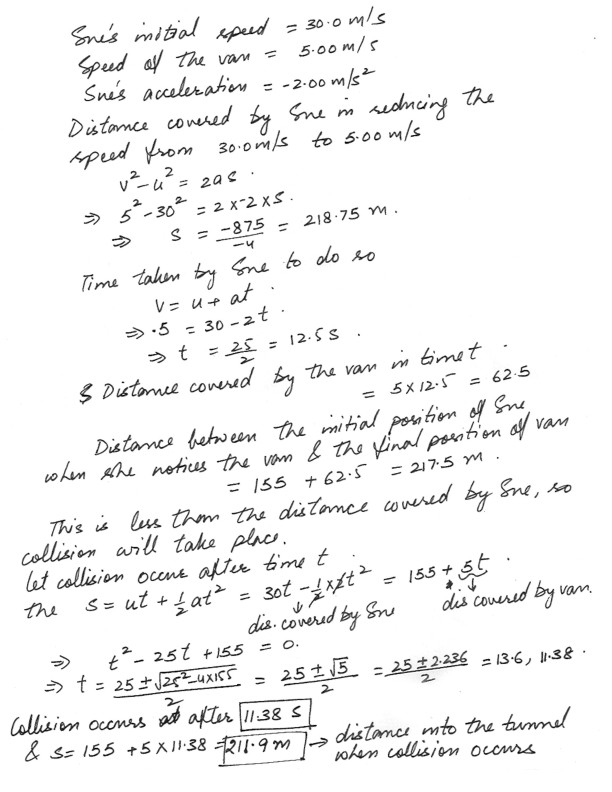 Sue's initial speed = 30.0 m/s
Speed of the van = 5.00 m/s
Sue's acceleration = -2.00 m/s²
Distance covered by Sue in reducing the
speed from 30.0 m/s to 5.00 m/s
v² - u² = 2as.
⇒ 5² - 30² = 2 x -2 x s.
⇒ s = -875/-4 = 218.75 m.
Time taken by Sue to do so
v = u + at.
⇒ .5 = 30 - 2t.
⇒ t = 25/2 = 12.5 s.
Distance covered by the van in time t.
= 5 x 12.5 = 62.5
Distance between the initial position of Sue
when she notices the van & the final position of van
= 155 + 62.5 = 217.5 m.
This is less than the distance covered by Sue, so
collision will take place.
let collision occur after time t.
the s = ut + ½at² = 30t - ½x2t² = 155 + 5t.
dis. covered by Sue dis covered by van.
⇒ t² - 25t + 155 = 0.
⇒ t = (25 ± √(25² - 4x155))/2 = (25 ± √5)/2 = (25 ± 2.236)/2 = 13.6, 11.38.
Collision occurs after 11.38 s
& s = 155 + 5 x 11.38 = 211.9 m → distance into the tunnel
when collision occurs